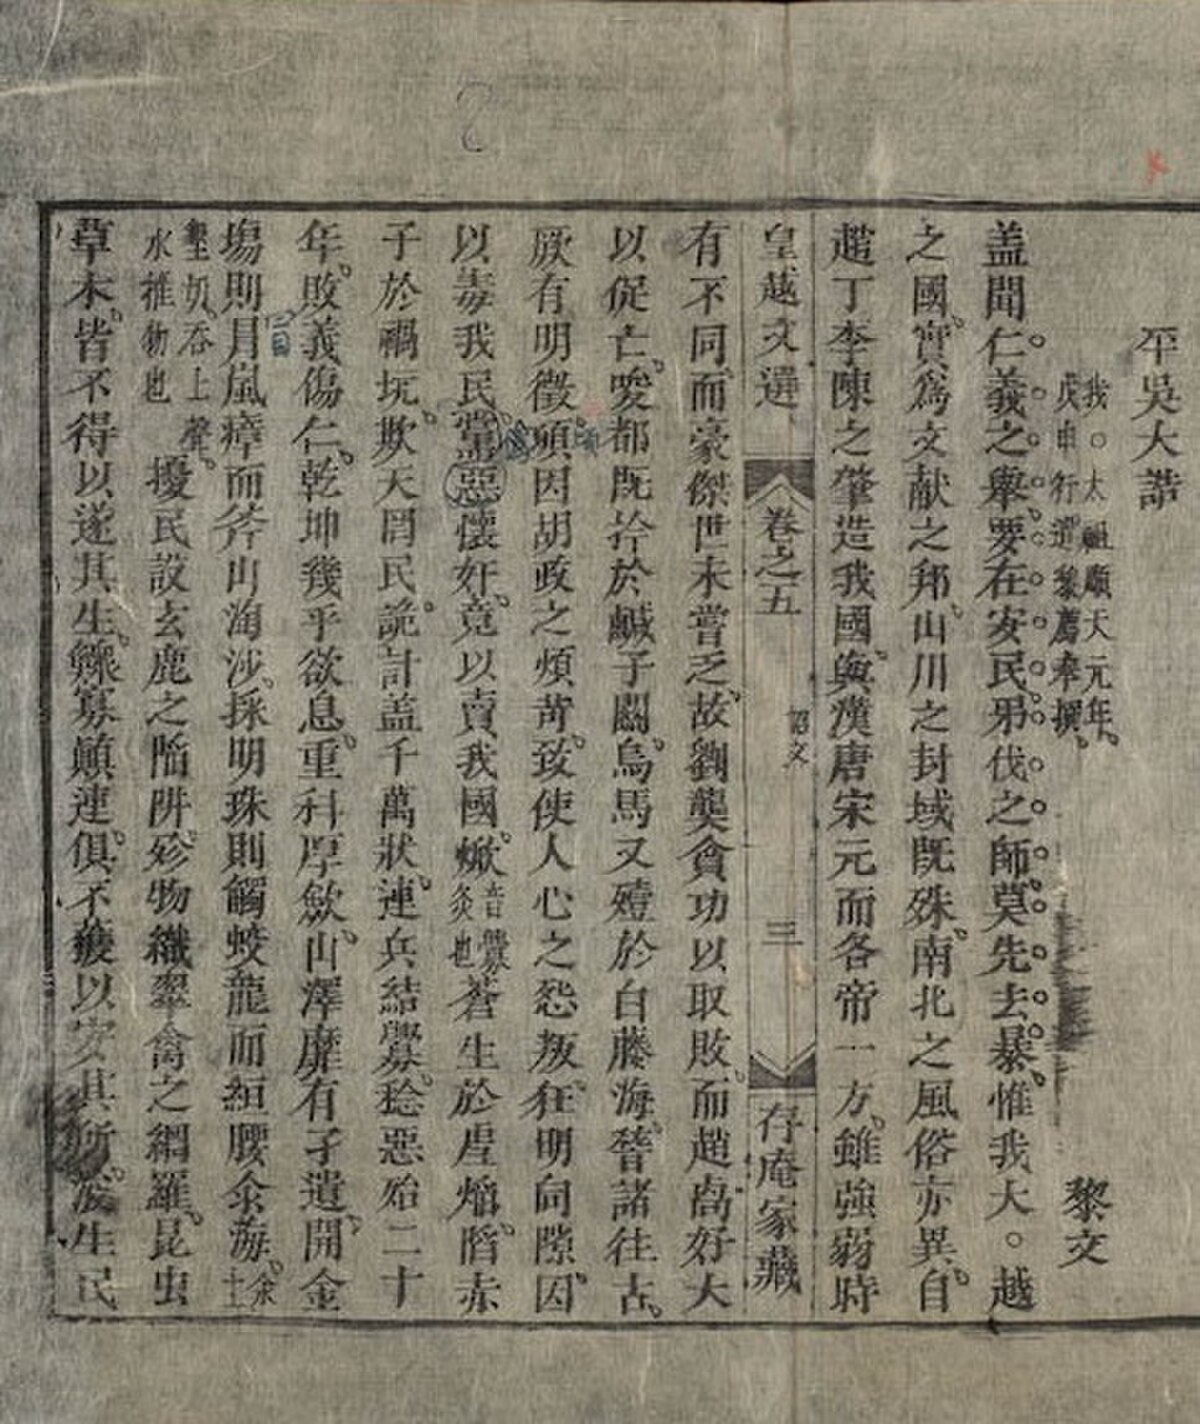 平吳大誥
我○太祖順天元年
戊申行遣黎薦奉撰
黎文
盖聞仁義之舉要在安民弔伐之師莫先去暴惟我大○越
之國實爲文献之邦山川之封域既殊南北之風俗亦異自
趙丁李陳之肇造我國與漢唐宋元而各帝一方雖強弱時
皇越文選 卷之五 詔文 三 存庵家藏
有不同而豪傑世未嘗乏故劉龔貪功以取敗而趙卨好大
以促亡唆都既擒於鹹子關烏馬又殪於白藤海嵇諸往古
厥有明徵頃因胡政之煩苛致使人心之怨叛狂明伺隙因
以毒我民黨惡懷奸竟以賣我國焮音釁灸也蒼生於虐焰陷赤
子於禍坑欺天罔民詭計盖千萬狀連兵結釁稔惡殆二十
年敗義傷仁乾坤幾乎欲息重科厚歛山澤靡有孑遺開金
塲則冐嵐瘴而斧山淘沙採明珠則觸蛟龍而絙腰汆海汆土
墾切吞上聲水推物也擾民設玄鹿之陷阱殄物織翠禽之網羅昆虫
草木皆不得以遂其生鰥寡顛連俱不獲以安其所浚生民